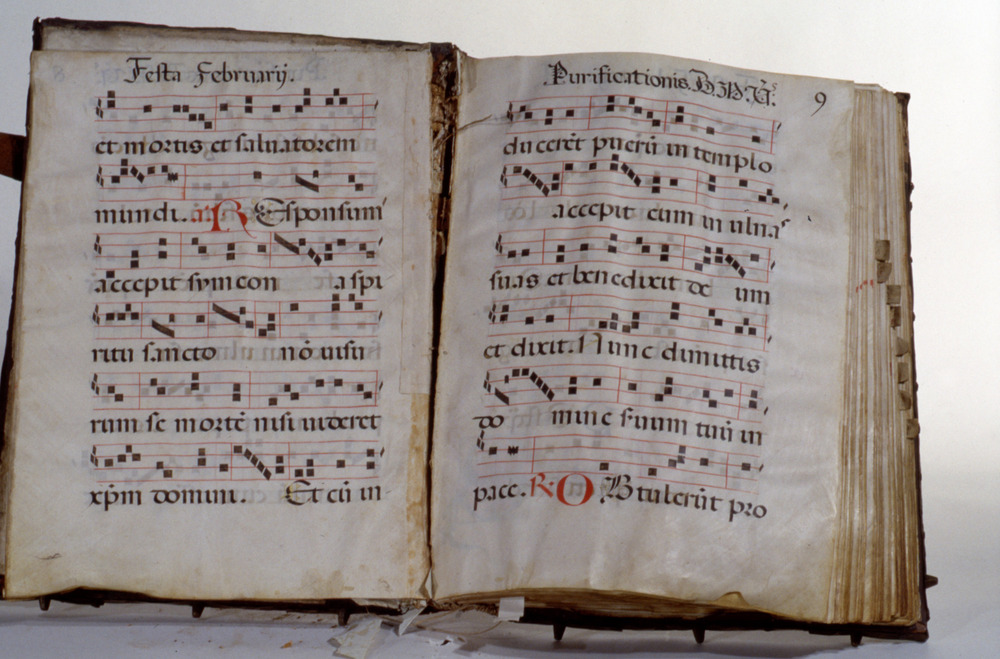 Festa Februarij.
et mortis et saluatorem
mundi. a. R. Esponsum
accepit symeon a spi
ritu sancto nō uisu
rum se mortē nisi uideret
xpm domini. Et cū in
Purificationis. B. M. V. 9
ducerēt puerū in templo
accepit eum in ulnas
suas et benedixit de um
et dixit. Nunc dimittis
do mine seruum tuū in
pace. R. O Btulerūt pro